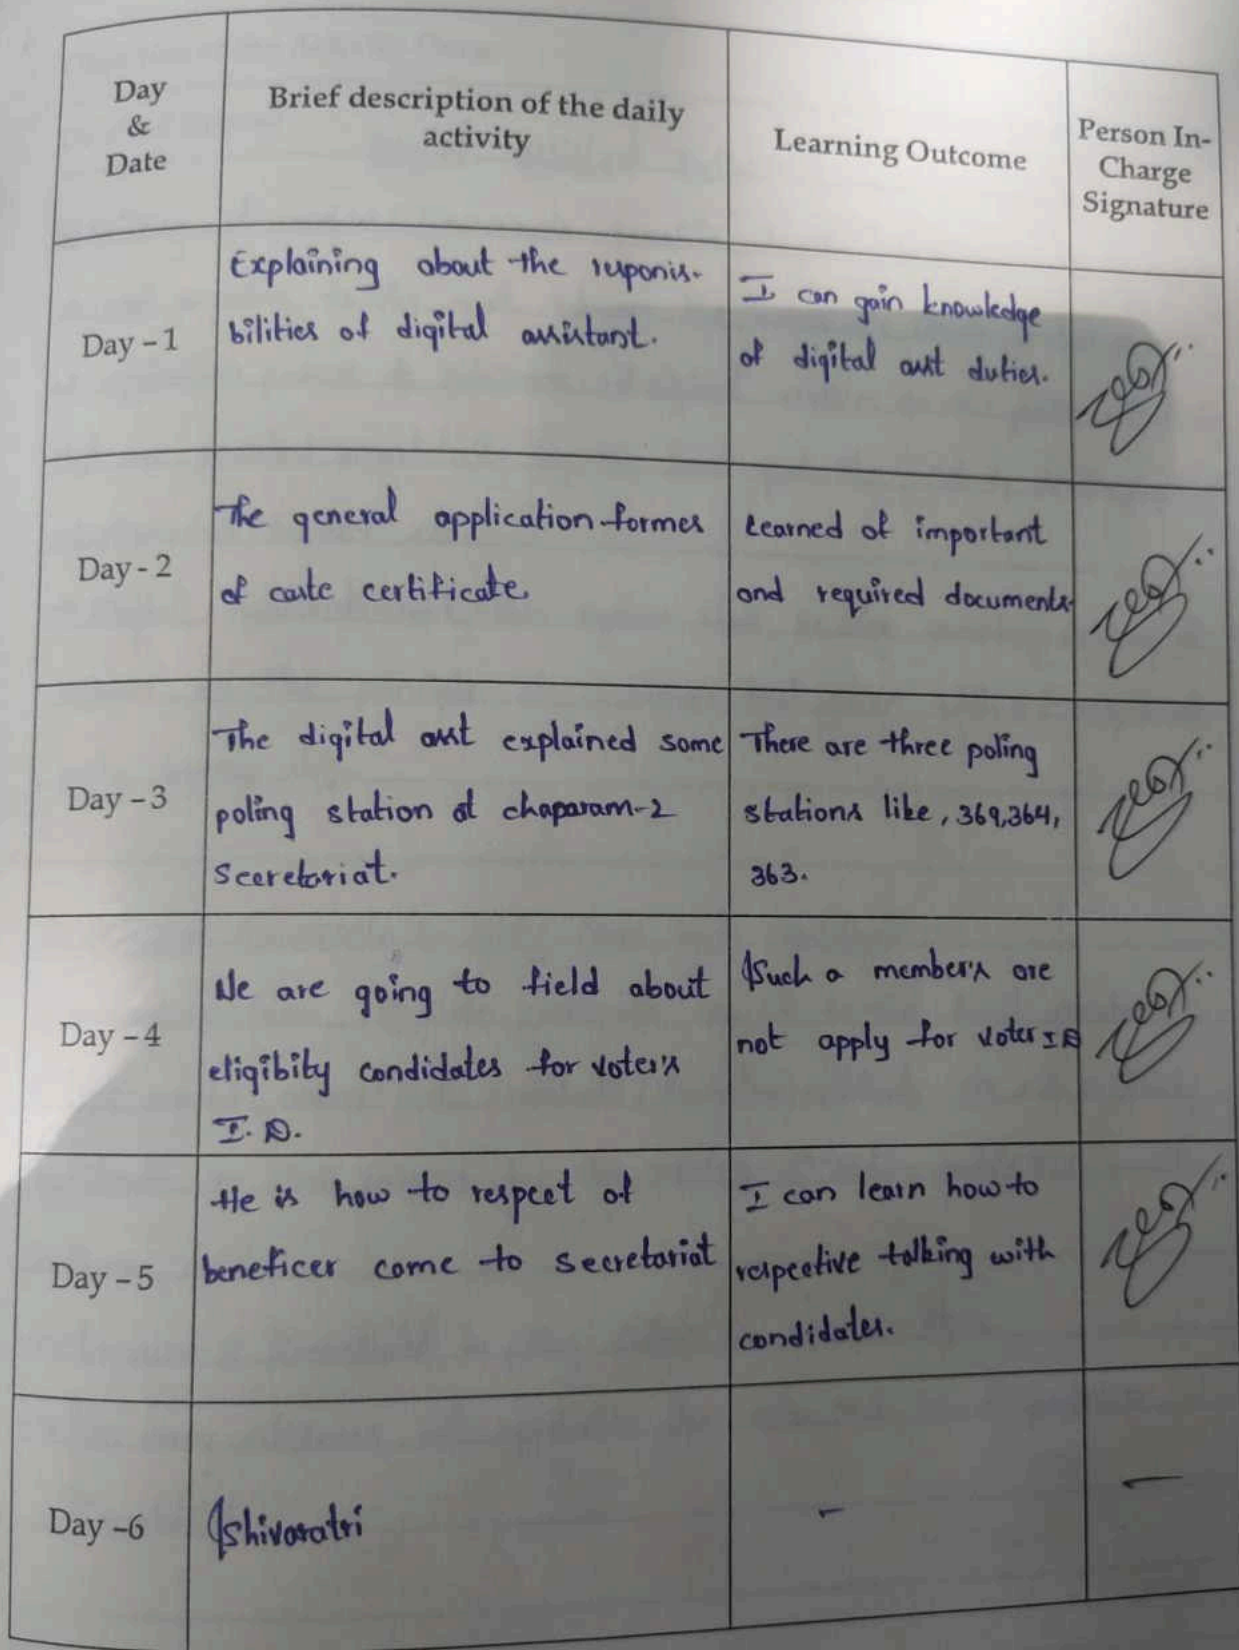 Day
&
Date
Brief description of the daily
activity
Learning Outcome
Person In-
Charge
Signature
Day - 1
Explaining about the responis-
bilities of digital assistant.
I can gain knowledge
of digital asst duties.
Day - 2
The general application formes
of caste certificate.
Learned of important
and required documents.
Day - 3
The digital asst explained some
poling station at chaparam-2
Secretariat.
There are three poling
stations like, 369,364,
363.
Day - 4
We are going to field about
eligibity candidates for voter's
I.D.
Such a member's are
not apply for voter ID
Day - 5
He is how to respect of
beneficer come to secretariat
I can learn how to
respective talking with
candidates.
Day -6
Shivaratri
-
-